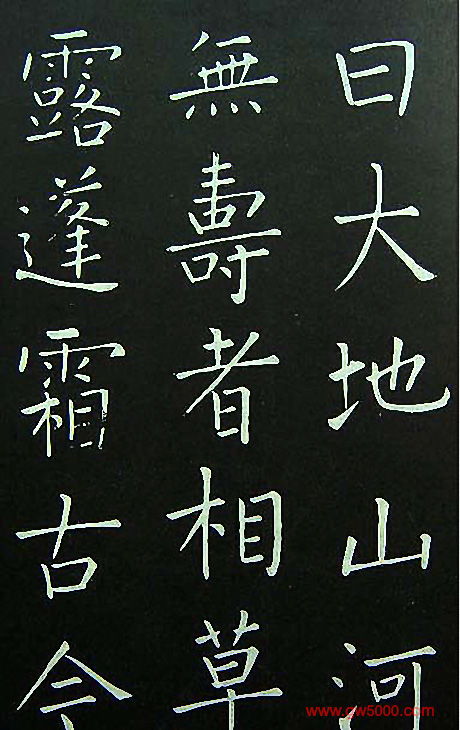 曰大地山河
無壽者相草
露蓬霜古今
www.gw5000.com